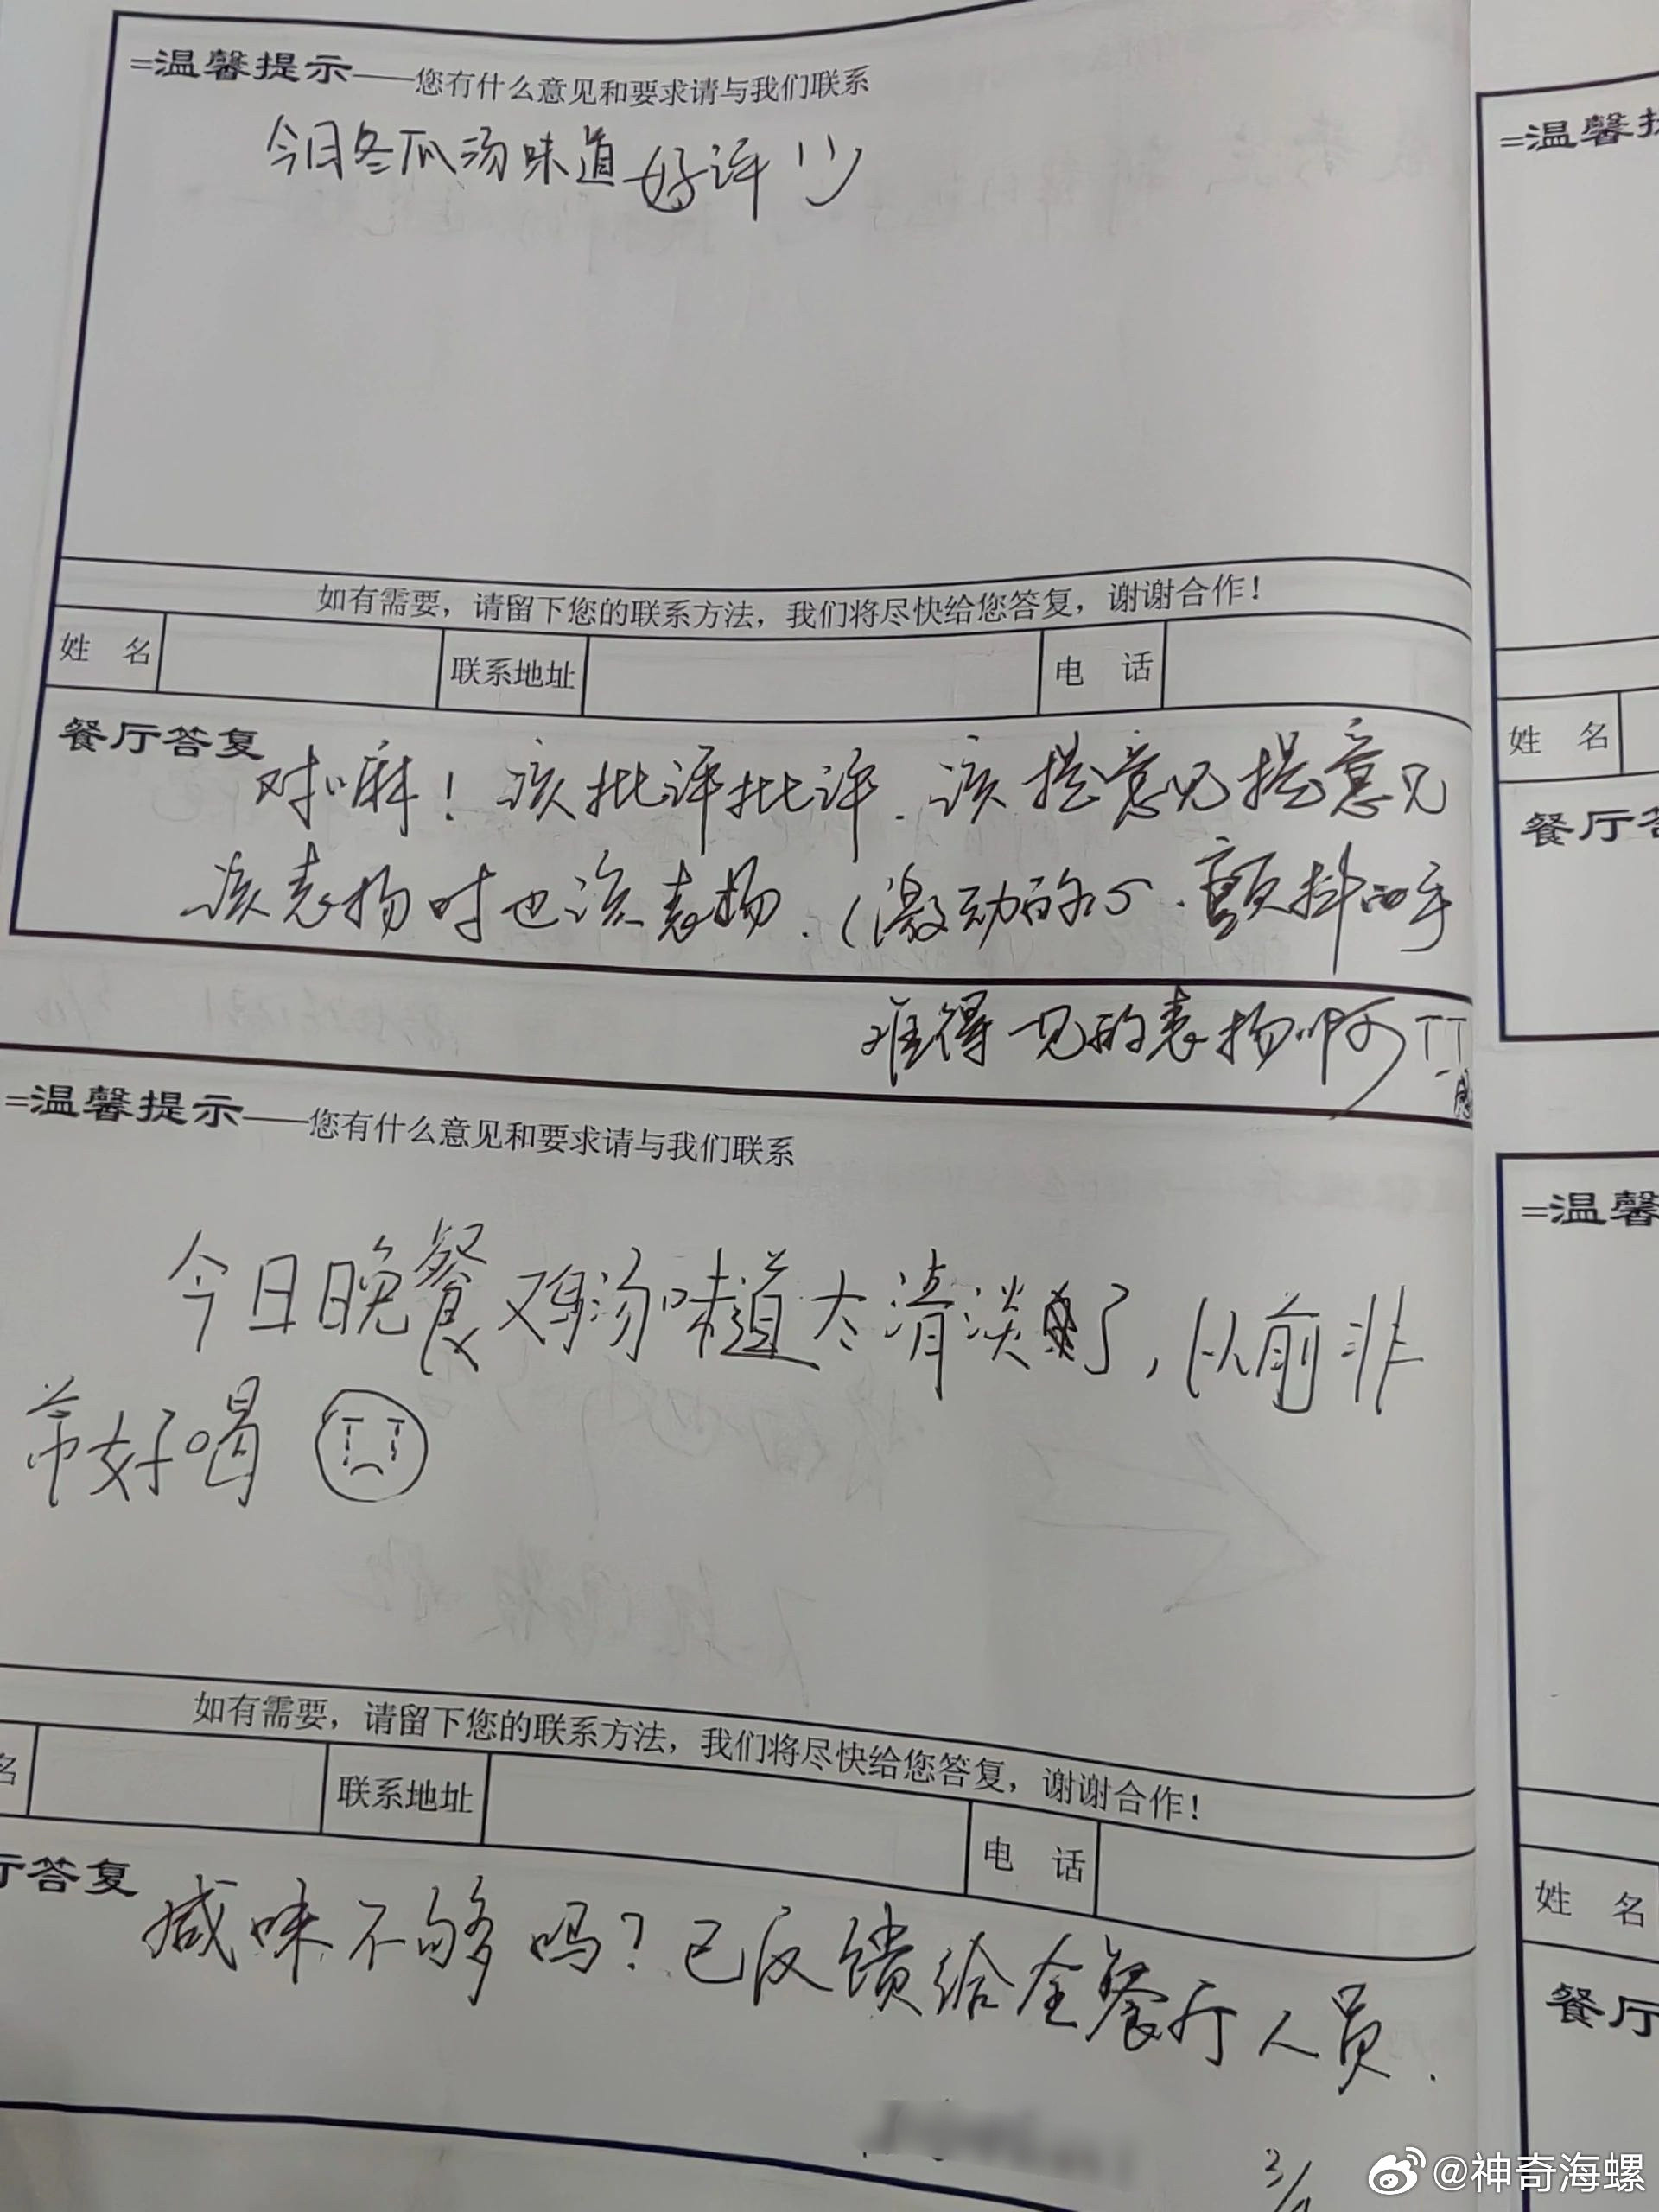 =温馨提示——您有什么意见和要求请与我们联系
今日冬瓜汤味道好评 !!)
如有需要，请留下您的联系方法，我们将尽快给您答复，谢谢合作！
姓 名 联系地址 电 话
餐厅答复
对嘛！该批评批评．该提意见提意见
该表扬时也该表扬．（激动的心．颤抖的手
难得一见的表扬啊TT
=温馨提示——您有什么意见和要求请与我们联系
今日晚餐鸡汤味道太清淡了，从前非
常好喝
如有需要，请留下您的联系方法，我们将尽快给您答复，谢谢合作！
名 联系地址 电 话
厅答复
咸味不够吗？已反馈给全餐厅人员．
=温馨提
姓 名
餐厅答
=温馨
姓 名
餐厅
@神奇海螺